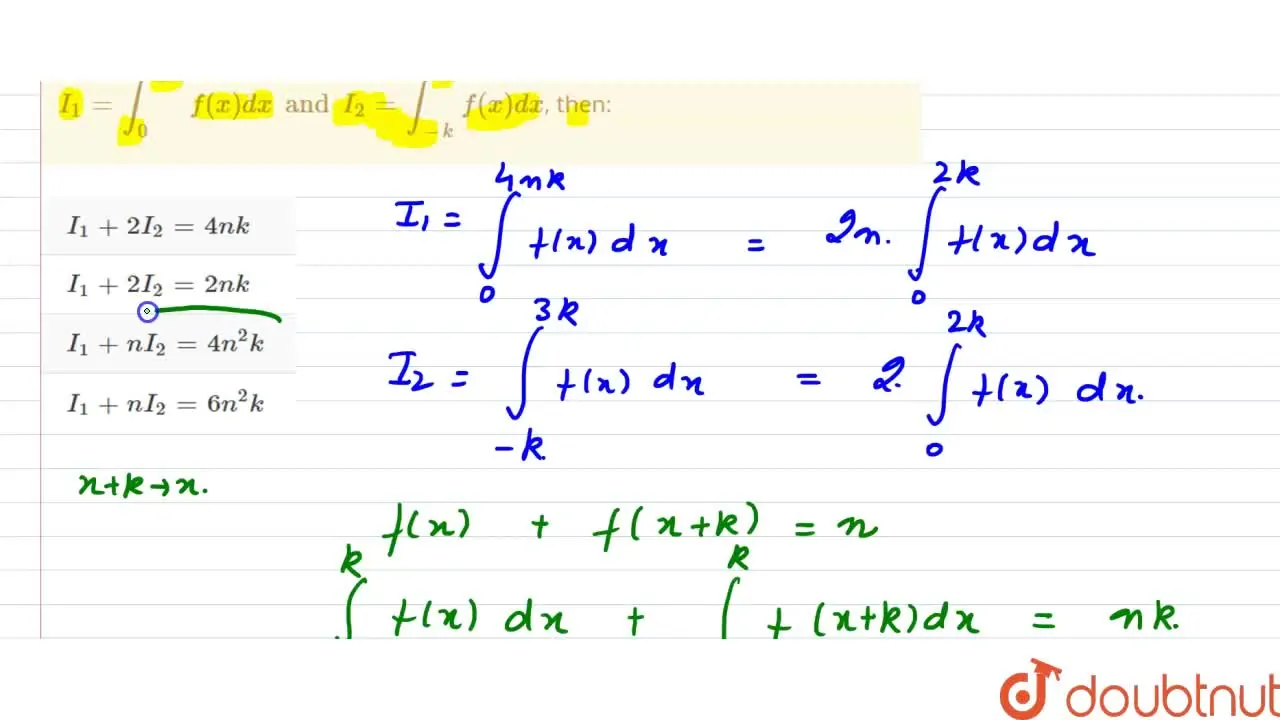 I₁ = ∫₀ f(x)dx and I₂ = ∫₋ₖ f(x)dx, then:
I₁ + 2I₂ = 4nk
I₁ + 2I₂ = 2nk
I₁ + nI₂ = 4n²k
I₁ + nI₂ = 6n²k
I₁ = ∫₀^{4nk} f(x) dx = 2n. ∫₀^{2k} f(x) dx
I₂ = ∫_{-k}^{3k} f(x) dx = 2. ∫₀^{2k} f(x) dx.
x+k→x.
f(x) + f(x+k) = n
∫^{k} f(x) dx + ∫^{k} f(x+k)dx = nk.
doubtnut